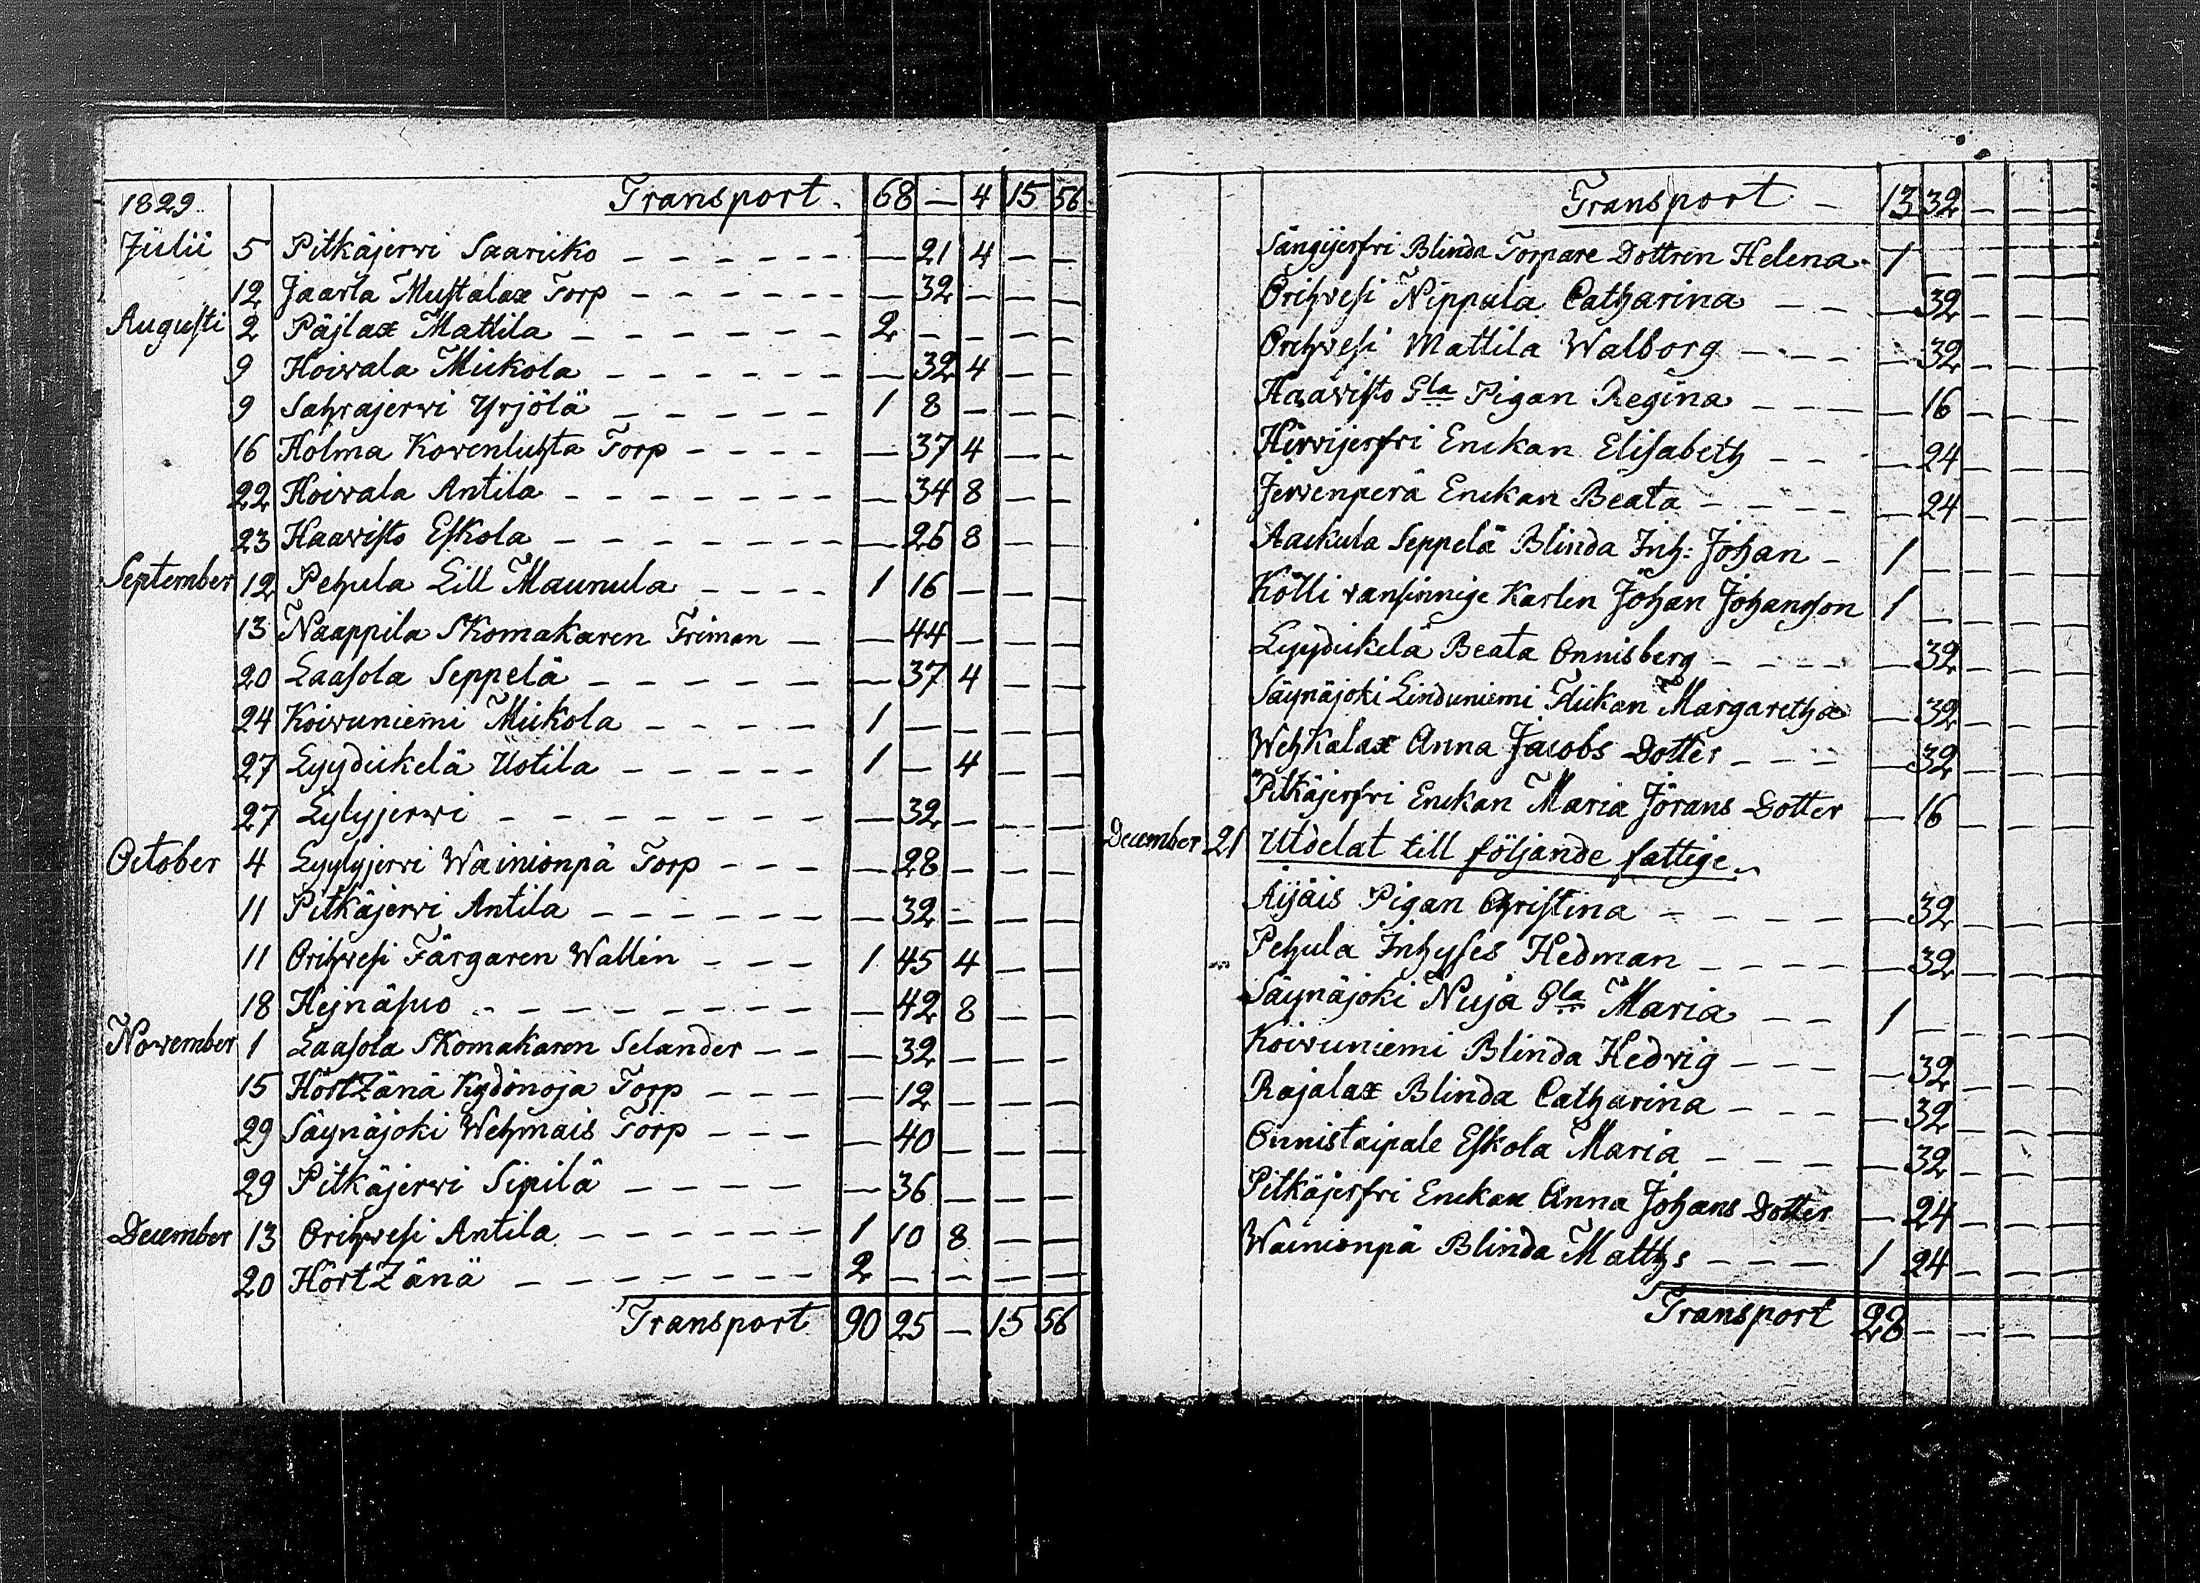 1829. Transport. 68 — 4 15 56
Julii 5 Pitkäjerwi Saariko — 21 4 — —
12 Jaarla Mustalax Torp — 32 — — —
Augusti 2 Päjlax Mattila 2 — — — —
9 Hoivala Mickola — 32 4 — —
9 Sahrajerwi Yrjölä 1 8 — — —
16 Holma Kowenluhta Torp — 37 4 — —
22 Hoivala Antila — 34 8 — —
23 Haavisto Eskola — 26 8 — —
September 12 Pehula Lill Maunula 1 16 — — —
13 Naappila Skomakaren Friman — 44 — — —
20 Laasola Seppelä — 37 4 — —
24 Koivuniemi Mickola 1 — — — —
27 Lyydickelä Uotila 1 — 4 — —
27 Lylyjerwi — 32 — — —
October 4 Lyylyjerwi Wainionpä Torp — 28 — — —
11 Pitkäjerwi Antila — 32 — — —
11 Orihvesi Färgaren Wallin 1 45 4 — —
18 Hejnäsuo — 42 8 — —
November 1 Laasola Skomakaren Selander — 32 — — —
15 Hörtzänä Kydönoja Torp — 12 — — —
29 Säynäjoki Wehmais Torp — 40 — — —
29 Pitkäjerwi Sipilä — 36 — — —
December 13 Orihvesi Antila 1 10 8 — —
20 Hörtzänä 2 — — — —
Transport 90 25 — 15 56
Transport — 13 32 — — —
Sängijerfri Blinda Torpare Dottren Helena 1 — — — —
Orihvesi Nippula Catharina — 32 — — —
Orihvesi Mattila Walborg — 32 — — —
Haavisto Gla Pigan Regina — 16 — — —
Hirvijerfri Enckan Elisabeth — 24 — — —
Jervenperä Enckan Beata — 24 — — —
Aackula Seppelä Blinda Inh: Johan 1 — — — —
Kölli vansinnige Karlen Johan Johansson 1 — — — —
Lyydickelä Beata Onnisberg — 32 — — —
Säynäjoki Linduniemi Flickan Margaretha — 32 — — —
Wehkalax Anna Jacobs Dotter — 32 — — —
Pitkäjerfri Enckan Maria Jörans Dotter — 16 — — —
December 21 Utdelat till följande fattige
Äijäis Pigan Christina — 32 — — —
Pehula Inhyses Hedman — 32 — — —
Säynäjoki Nuja Gla Maria 1 — — — —
Koivuniemi Blinda Hedvig — 32 — — —
Rajalax Blinda Catharina — 32 — — —
Onnistaipale Eskola Maria — 32 — — —
Pitkäjerfri Enckan Anna Johans Dotter — 24 — — —
Wainionpä Blinda Matths 1 24 — — —
Transport 28 — — — —